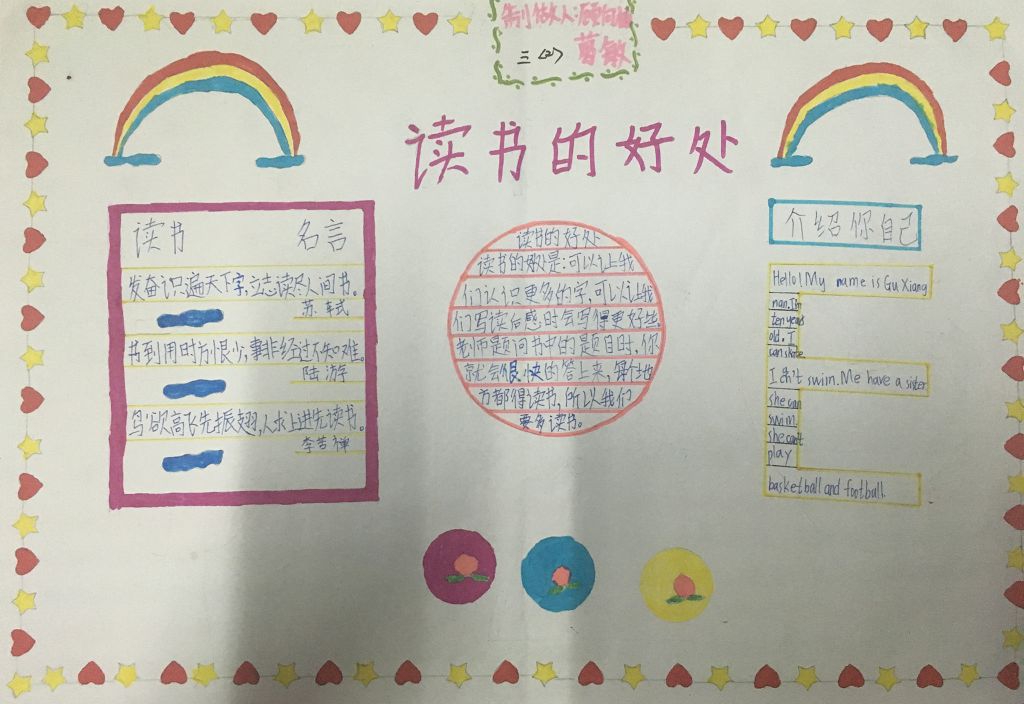 制作人:顾向
三<2> 葛敏
读书的好处
读书 名言
发奋识遍天下字,立志读尽人间书。
苏轼
书到用时方恨少,事非经过不知难。
陆游
鸟欲高飞先振翅,人求上进先读书。
李苦禅
读书的好处
读书的好处是:可以让我
们认识更多的字,可以让我
们写读后感时会写得更好些.
老师题问书中的题目时,你
就会很快的答上来,每个地
方都得读书,所以我们
要多读书。
介绍你自己
Hello! My name is Gu Xiang
nan. I'm
ten years
old. I
can skate
I can't swim. Me have a sister
she can
swim.
she can't
play
basketball and football.